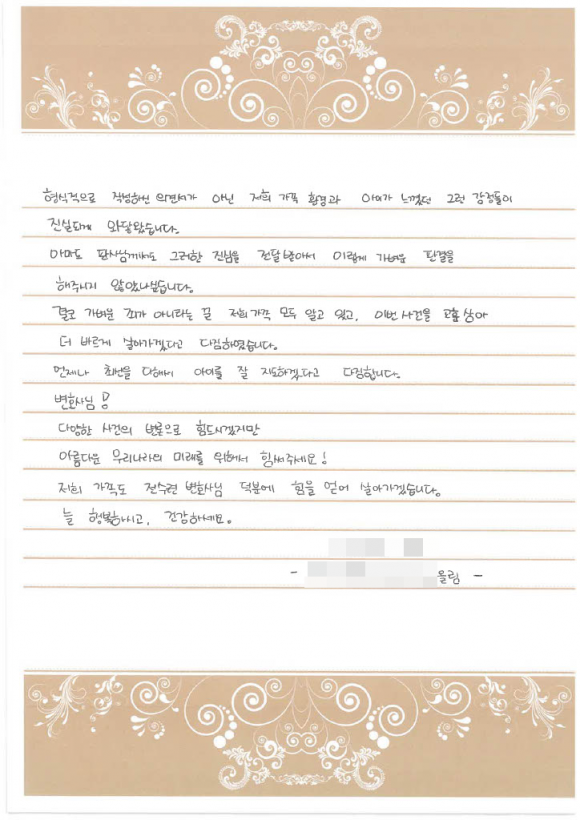 형식적으로 작성하신 의견서가 아닌 저희 가족 환경과 아이가 느꼈던 그런 감정들이
진실되게 와닿았습니다.
아마도 판사님께서도 그러한 진심을 전달받아서 이렇게 가벼운 판결을
해주시지 않았나싶습니다.
결코 가벼운 죄가 아니라는 걸 저희가족 모두 알고 있고, 이번 사건을 교훈 삼아
더 바르게 살아가겠다고 다짐하였습니다.
언제나 최선을 다해서 아이를 잘 지도하겠다고 다짐합니다.
변호사님!
다양한 사건의 변론으로 힘드시겠지만
아름다운 우리나라의 미래를 위해서 힘써주세요!
저희 가족도 전수련 변호사님 덕분에 힘을 얻어 살아가겠습니다.
늘 행복하시고, 건강하세요.
- 올림 -